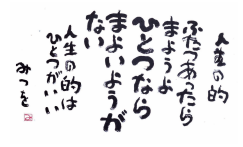 人生の的
ふたつあったら
まようよ
ひとつなら
まよいようが
ない
人生の的は
ひとつがいい
みつを